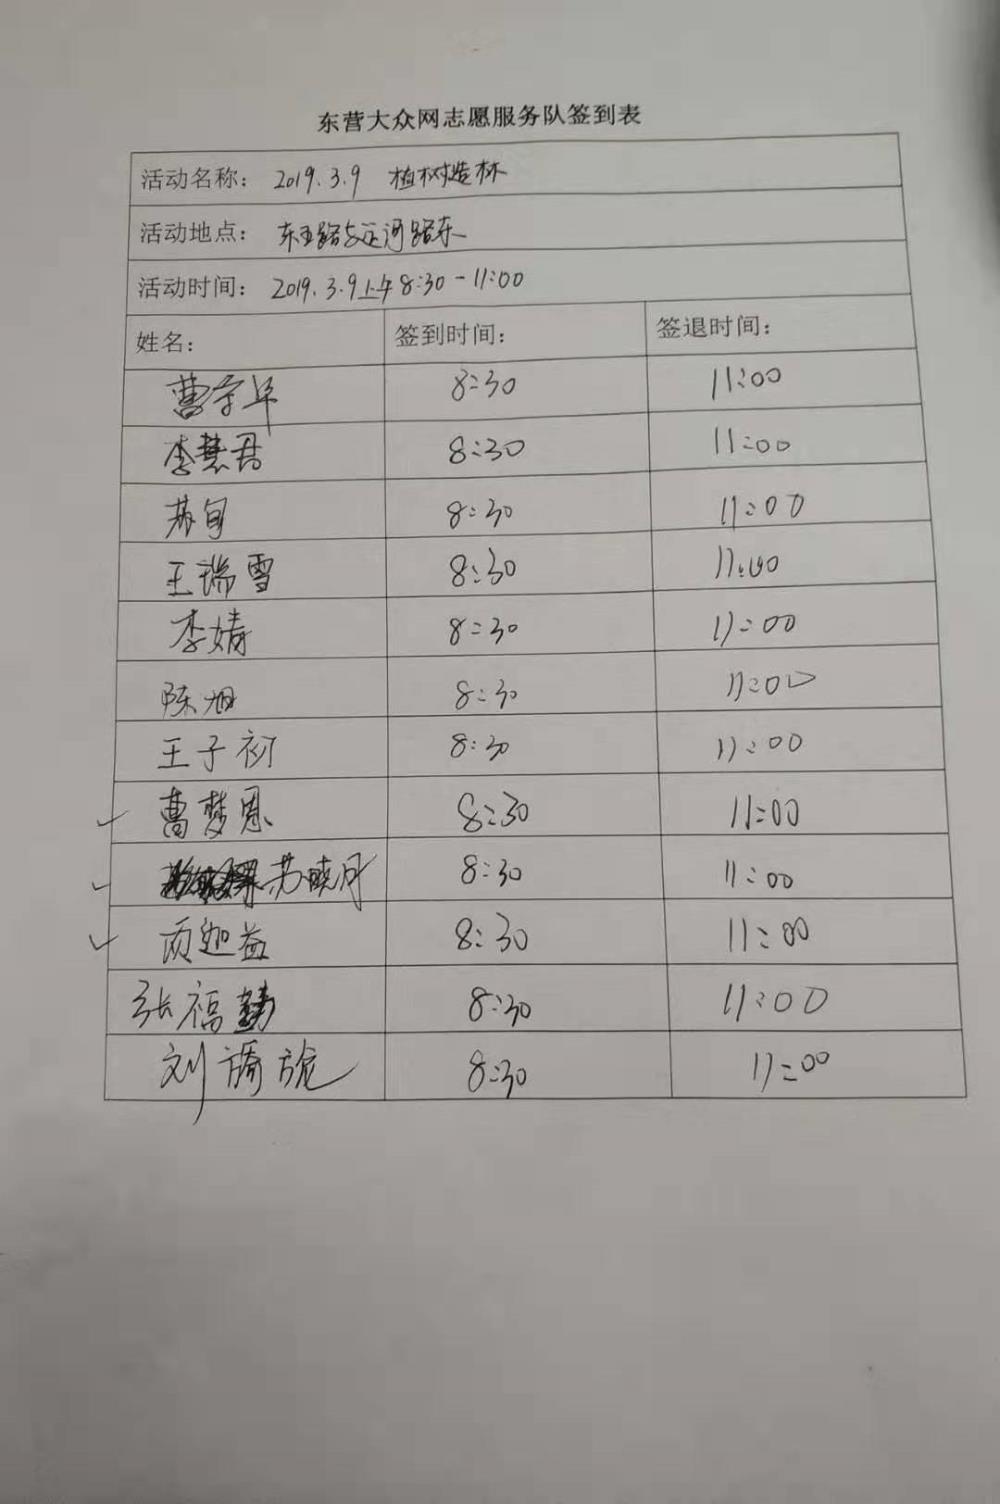 东营大众网志愿服务队签到表
活动名称： 2019.3.9 植树造林
活动地点： 东五路与运河路东
活动时间： 2019.3.9上午8:30-11:00
姓名： 签到时间： 签退时间：
曹 8:30 11:00
李慧君 8:30 11:00
苏 8:30 11:00
王瑞雪 8:30 11:00
李婧 8:30 11:00
陈旭 8:30 11:00
王子初 8:30 11:00
曹梦恩 8:30 11:00
苏晓月 8:30 11:00
8:30 11:00
张福 8:30 11:00
刘 8:30 11:00